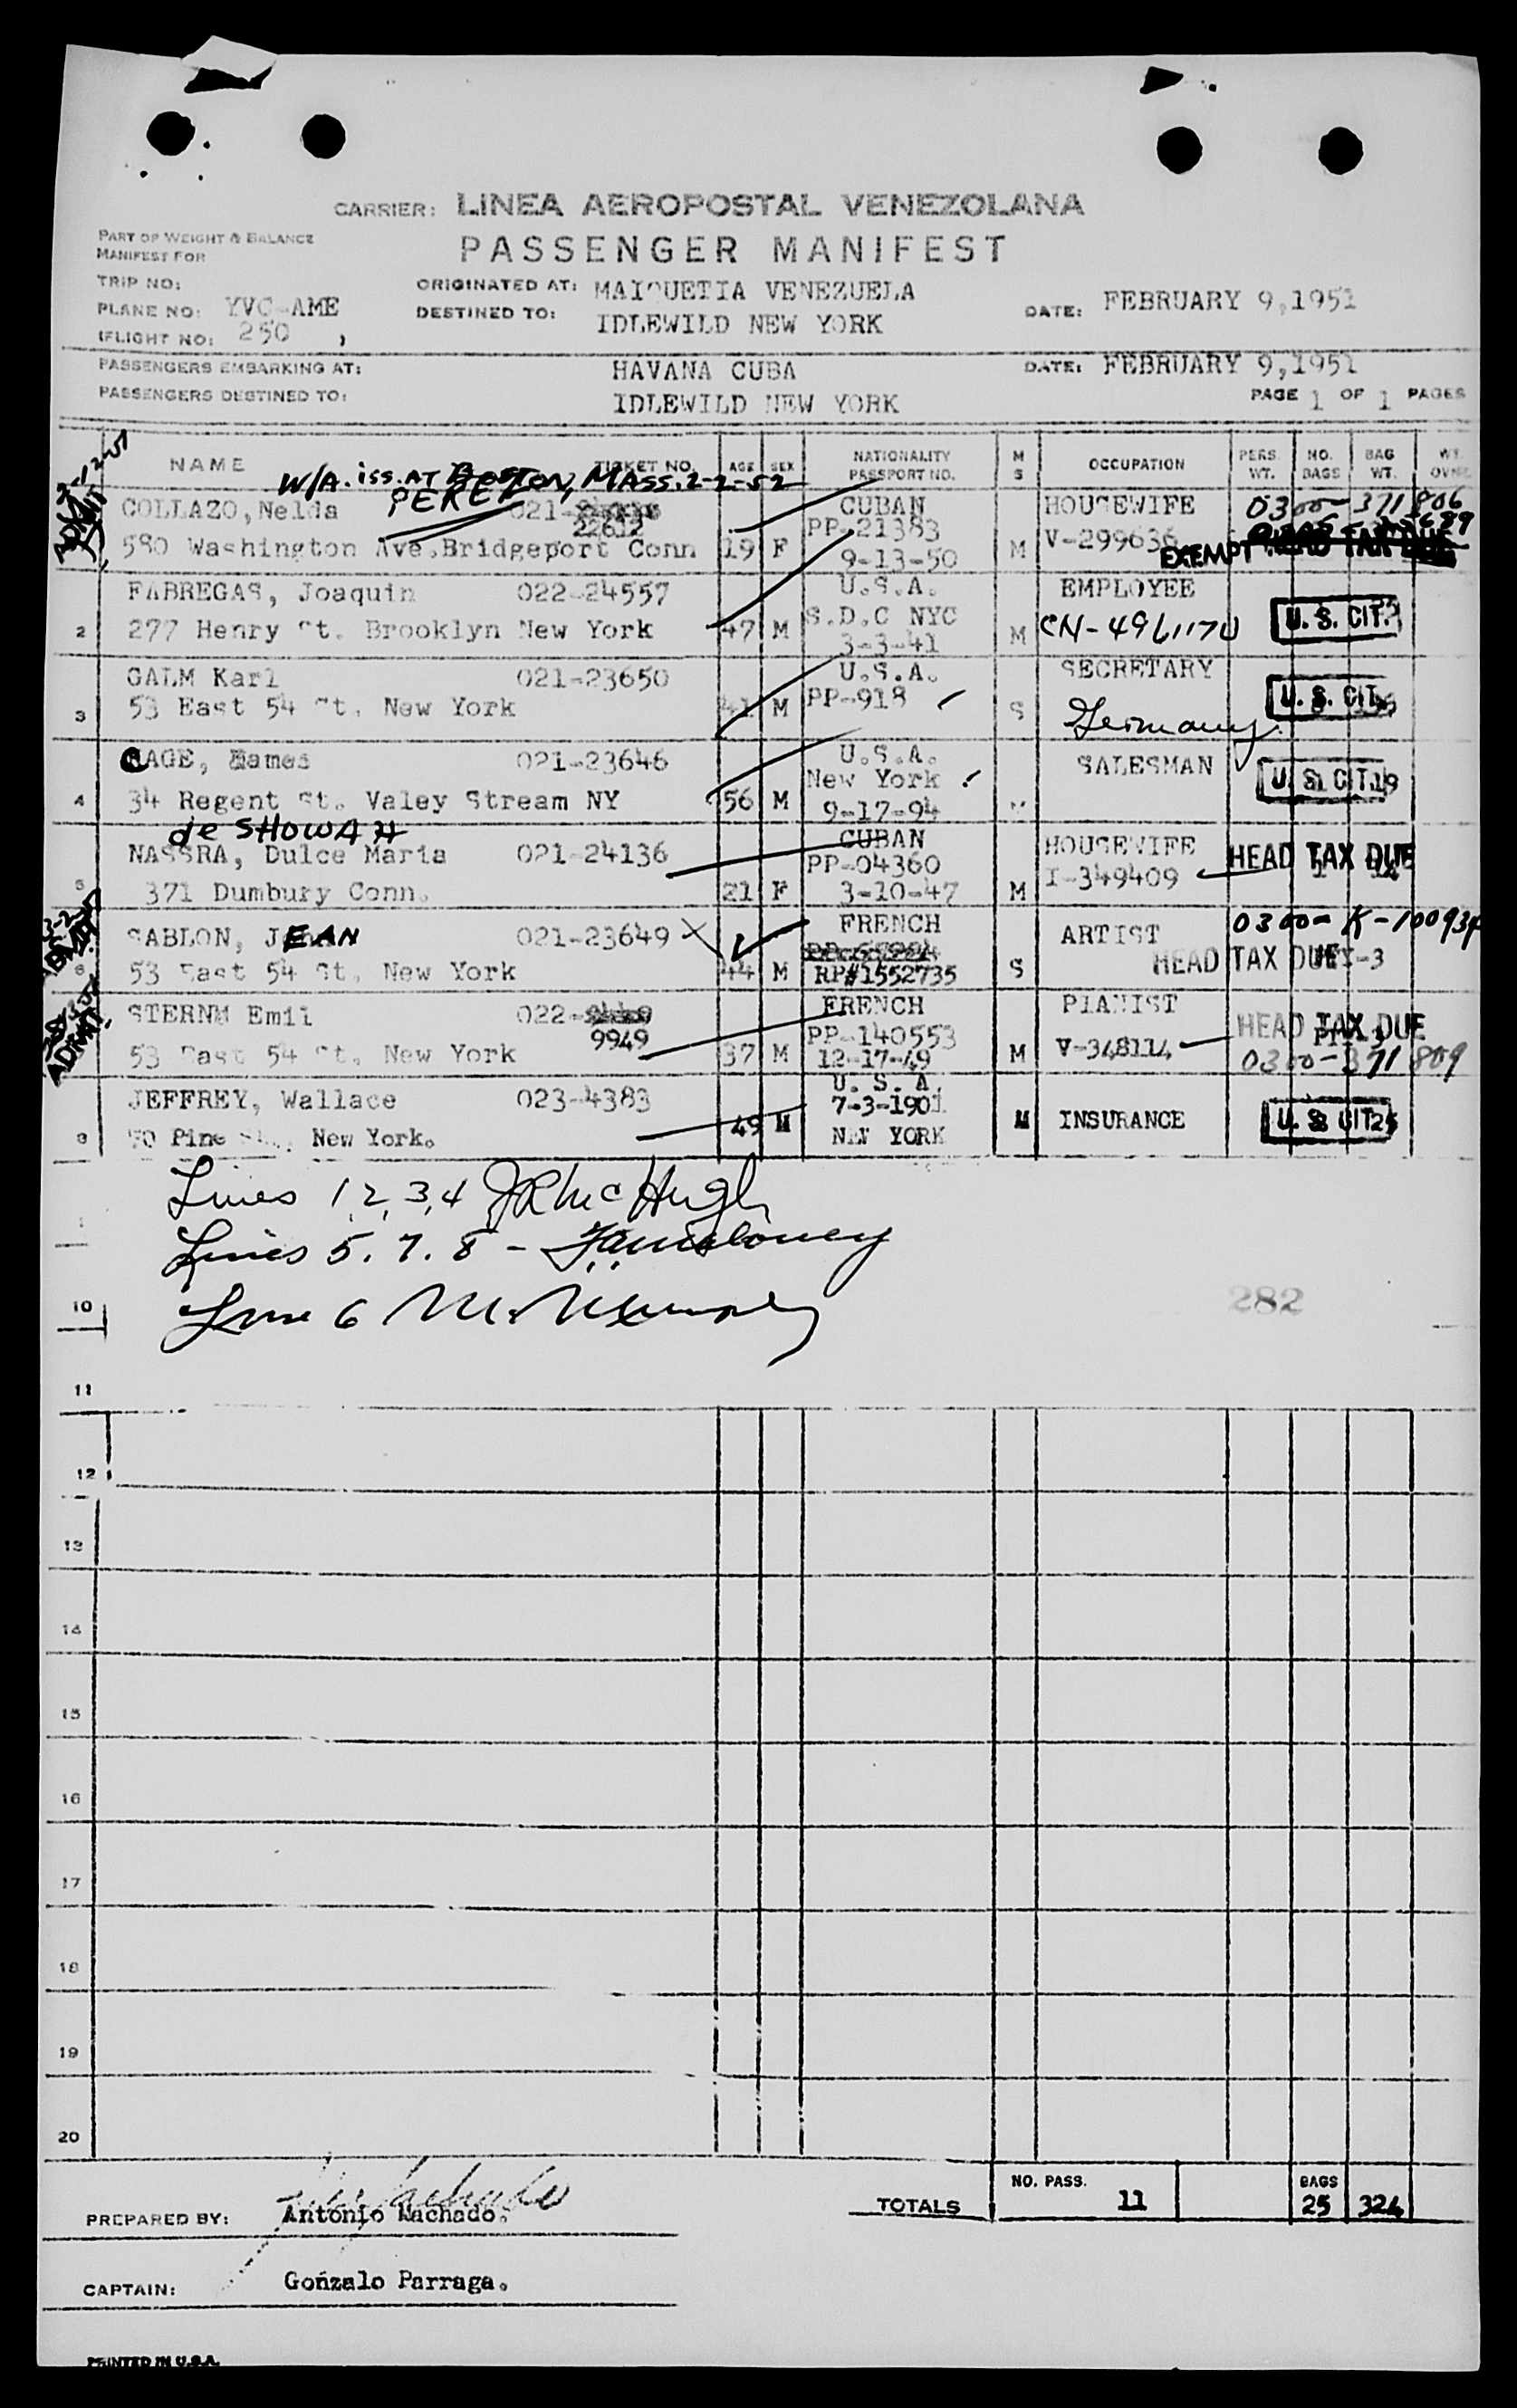 CARRIER: LINEA AEROPOSTAL VENEZOLANA
PART OF WEIGHT & BALANCE
MANIFEST FOR
PASSENGER MANIFEST
TRIP NO:
ORIGINATED AT: MAIQUETIA VENEZUELA
PLANE NO: YVC-AME
DESTINED TO: IDLEWILD NEW YORK
DATE: FEBRUARY 9,1951
(FLIGHT NO: 250 )
PASSENGERS EMBARKING AT: HAVANA CUBA DATE: FEBRUARY 9,1951
PASSENGERS DESTINED TO: IDLEWILD NEW YORK PAGE 1 OF 1 PAGES
NAME TICKET NO. AGE SEX NATIONALITY PASSPORT NO. M S OCCUPATION PERS. WT. NO. BAGS BAG WT. WT.
W/A. iss. AT BOSTON, MASS. 2-2-52
COLLAZO, Nelda PEREZ 021- 22612 CUBAN HOUSEWIFE 0300-371806
PP-21383 V-299636
580 Washington Ave. Bridgeport Conn 19 F 9-13-50 M EXEMPT HEAD TAX DUE
FABREGAS, Joaquin 022-24557 U.S.A. EMPLOYEE
2 277 Henry St. Brooklyn New York 47 M S.D.C NYC M CN-4961170 U.S. CIT.
3-3-41
GALM Karl 021-23650 U.S.A. SECRETARY
3 53 East 54 St. New York 41 M PP-918 S Germany U.S. CIT.
CAGE, James 021-23646 U.S.A. SALESMAN
New York U.S. CIT.19
4 34 Regent St. Valey Stream NY 56 M 9-17-94 M
de SHOWAH
NASSRA, Dulce Maria 021-24136 CUBAN HOUSEWIFE HEAD TAX DUE
PP-04360 I-349409
5 371 Dumbury Conn. 21 F 3-10-47 M
SABLON, JEAN 021-23649 FRENCH ARTIST 0300-K-10093
HEAD TAX DUE
6 53 East 54 St. New York 44 M RP#1552735 S
STERNM Emil 022- 9949 FRENCH PIANIST HEAD TAX DUE
PP-140553
53 East 54 St. New York 37 M 12-17-49 M V-348114 0300-371809
JEFFREY, Wallace 023-4383 U.S.A.
7-3-1901
8 70 Pine St., New York. 49 M NEW YORK M INSURANCE U.S. CIT25
Lines 1, 2, 3, 4 JR McHugh
Lines 5. 7. 8 -
Line 6
10
282
11
12
13
14
15
16
17
18
19
20
TOTALS NO. PASS. 11 BAGS 25 324
PREPARED BY: Antonio Machado.
CAPTAIN: Gonzalo Parraga.
PRINTED IN U.S.A.